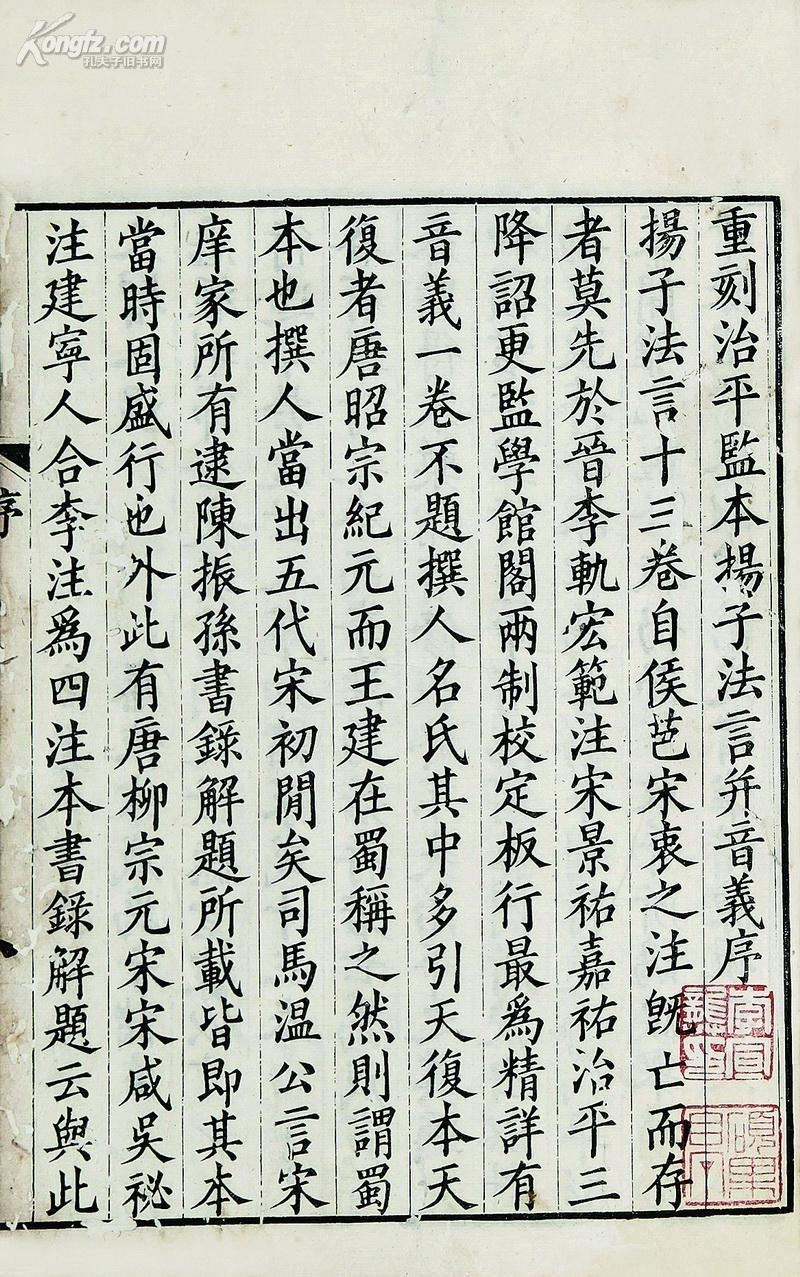 Kongfz.com
孔夫子旧书网
重刻治平監本揚子法言并音義序
揚子法言十三卷自侯芭宋衷之注旣亡而存
者莫先於晉李軌宏範注宋景祐嘉祐治平三
降詔更監學館閣兩制校定板行最爲精詳有
音義一卷不題撰人名氏其中多引天復本天
復者唐昭宗紀元而王建在蜀稱之然則謂蜀
本也撰人當出五代宋初閒矣司馬溫公言宋
庠家所有逮陳振孫書錄解題所載皆卽其本
當時固盛行也外此有唐柳宗元宋宋咸吳祕
注建寧人合李注爲四注本書錄解題云與此
序